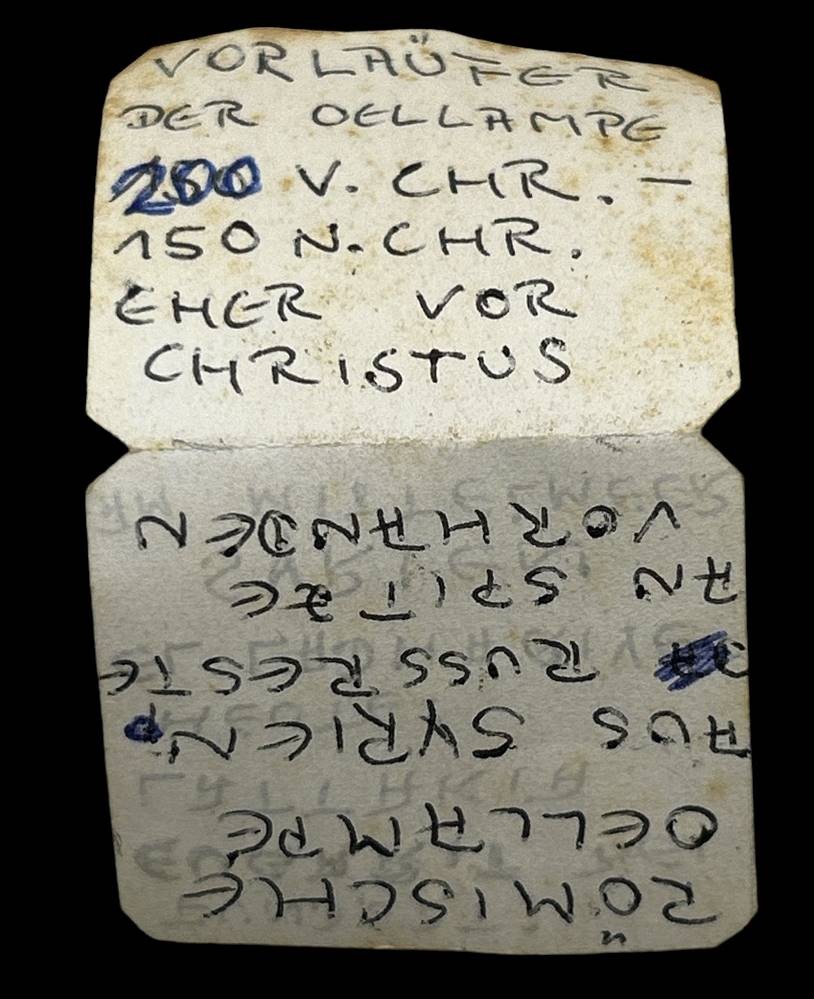 VORLAÜFER
DER OELLAMPE
200 V. CHR. –
150 N. CHR.
EHER VOR
CHRISTUS
RÖMISCHE
OELLAMPE
AUS SYRIEN
RUSSRESTE
AN SPITZE
VORHANDEN